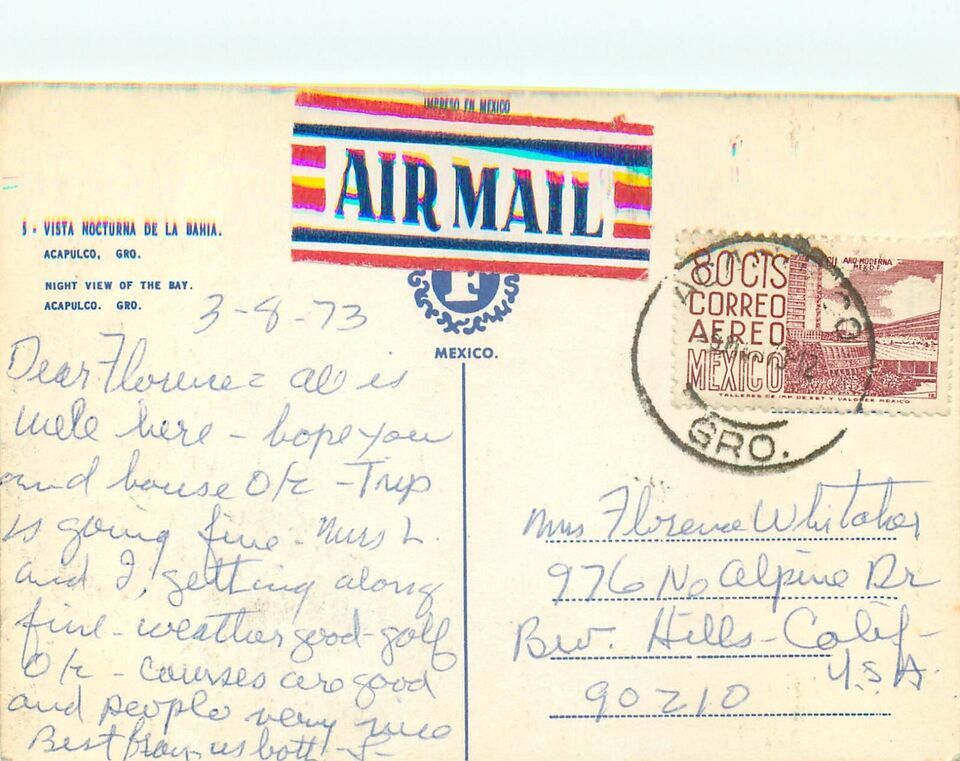 IMPRESO EN MEXICO
AIR MAIL
5 - VISTA NOCTURNA DE LA BAHIA.
ACAPULCO, GRO.
NIGHT VIEW OF THE BAY.
ACAPULCO. GRO.
MEXICO.
80 CTS
CORREO
AEREO
MEXICO
ARQ. MODERNA
MEX. D.F.
TALLERES DE IMP. DE EST. Y VALORES MEXICO
GRO.
3-8-73
Dear Florence all is
well here - hope you
and house O/K - Trip
is going fine - Mrs L.
and I, getting along
fine - weather good - golf
O/K - courses are good
and people very nice
Best from us both - J-
Mrs Florence Whitaker
976 No Alpine Dr
Bev. Hills - Calif -
U.S.A.
90210